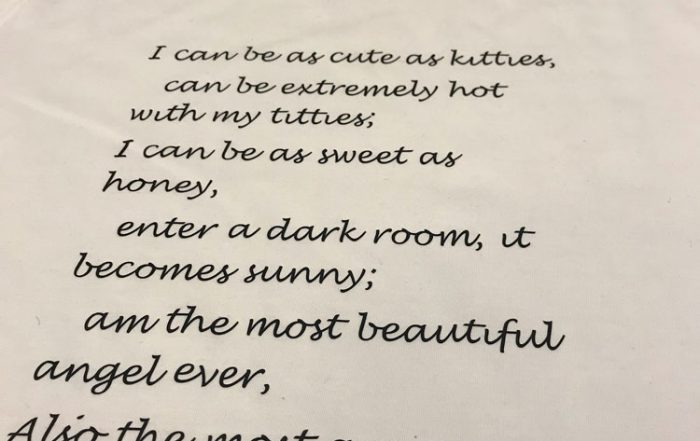 I can be as cute as kitties,
can be extremely hot
with my titties;
I can be as sweet as
honey,
enter a dark room, it
becomes sunny;
am the most beautiful
angel ever,
Also the most